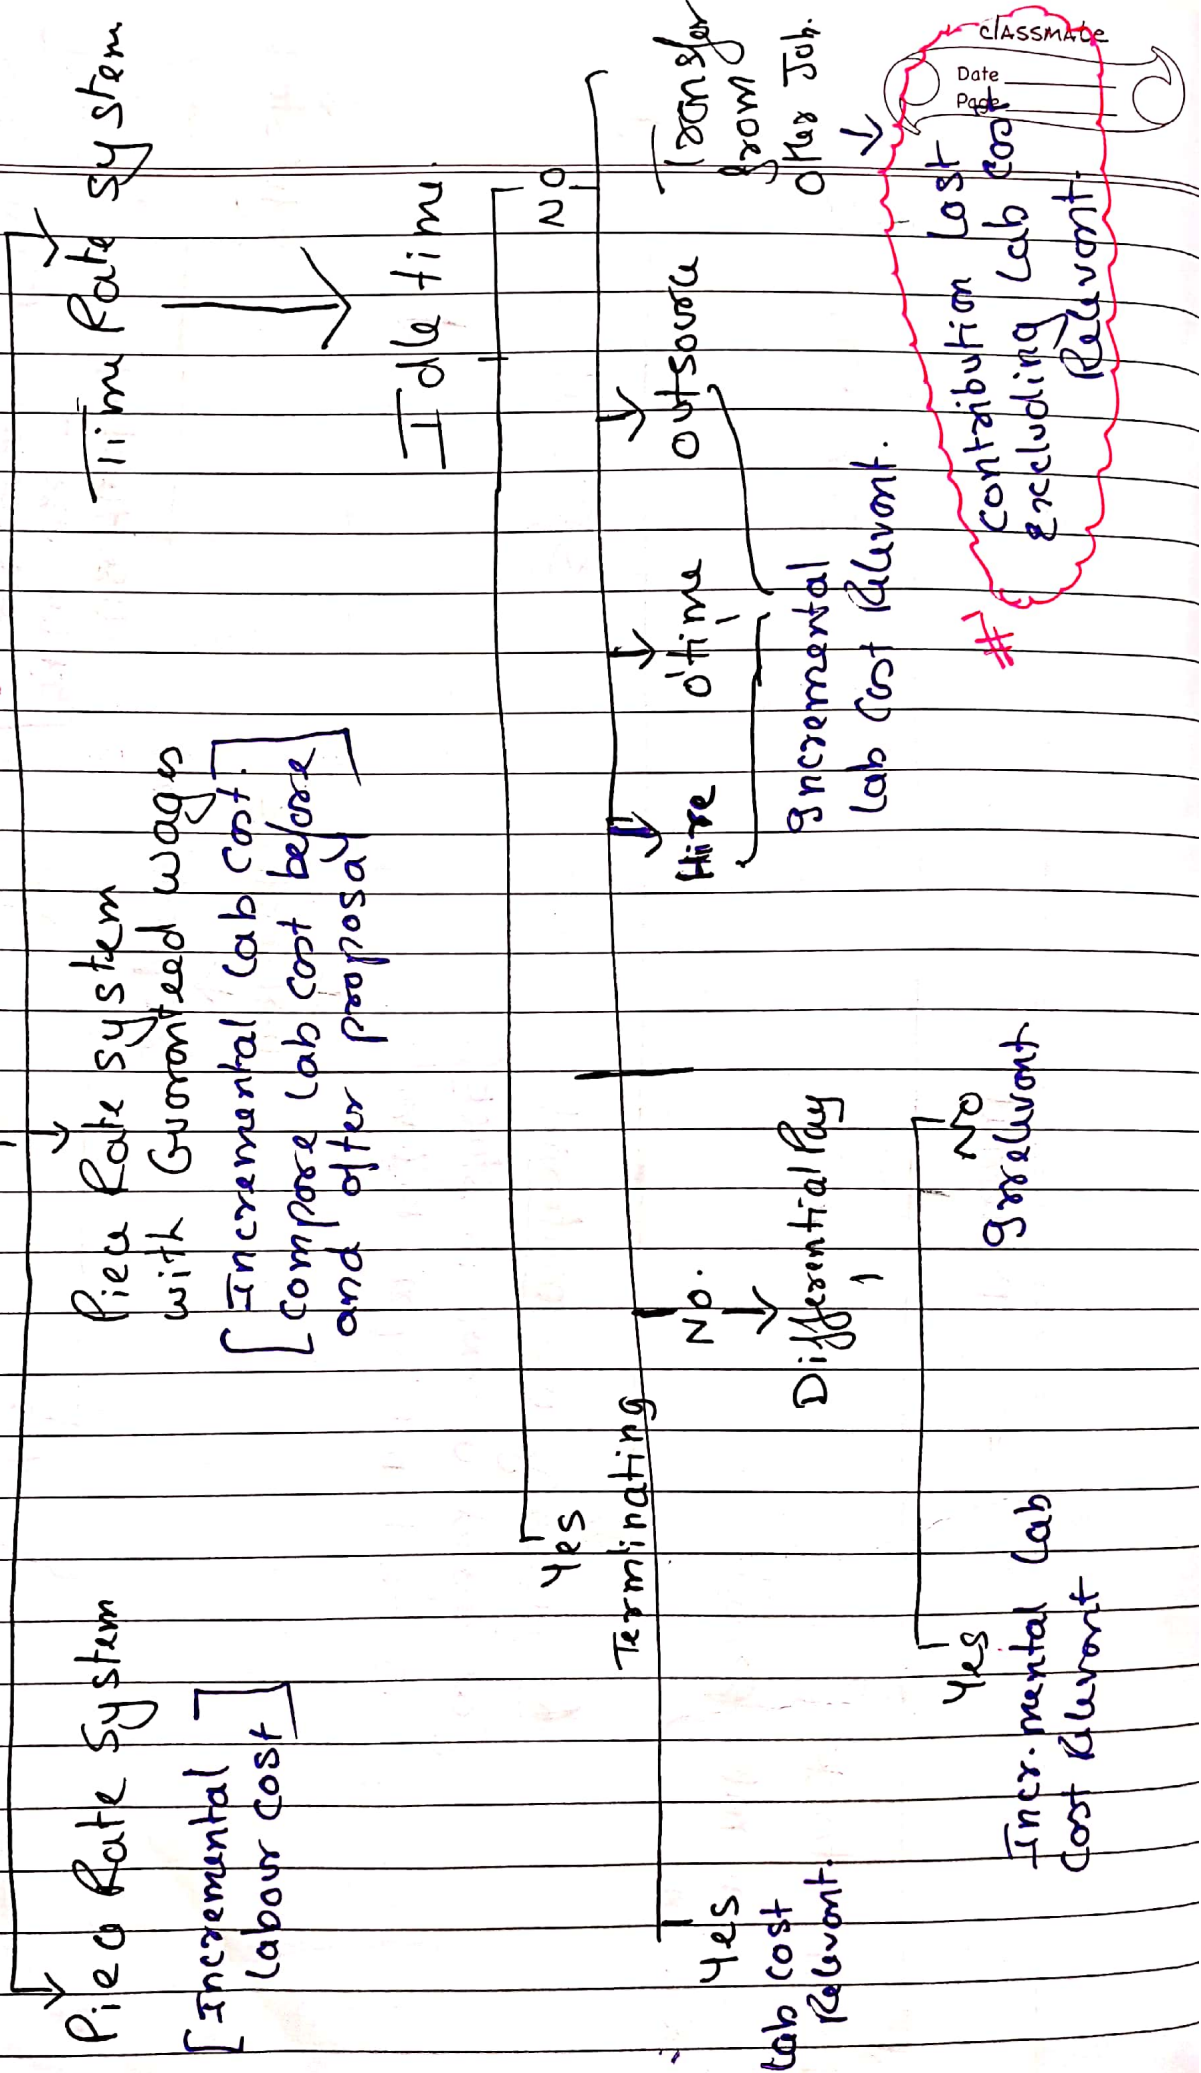 classmate
Date
Page
Piece Rate System
[Incremental
Labour cost]
Piece Rate system
with Guaranteed wages
[Incremental Lab cost.
compare Lab cost before
and after proposal]
Time Rate system
Idle time
Yes
NO
Terminating
Yes
Lab cost
Relevant.
NO.
Differential Pay
Yes
Incr.mental Lab
Cost Relevant
NO
Irrelevant
Hire
O'time
Outsource
Incremental
Lab Cost Relevant.
Transfer
from
other Job.
# Contribution Lost
Excluding Lab cost
Relevant.